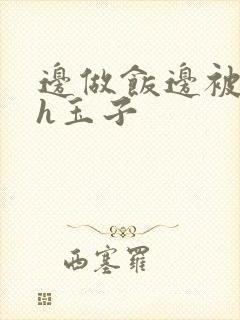 邊做飯邊被
h玉子
西塞羅